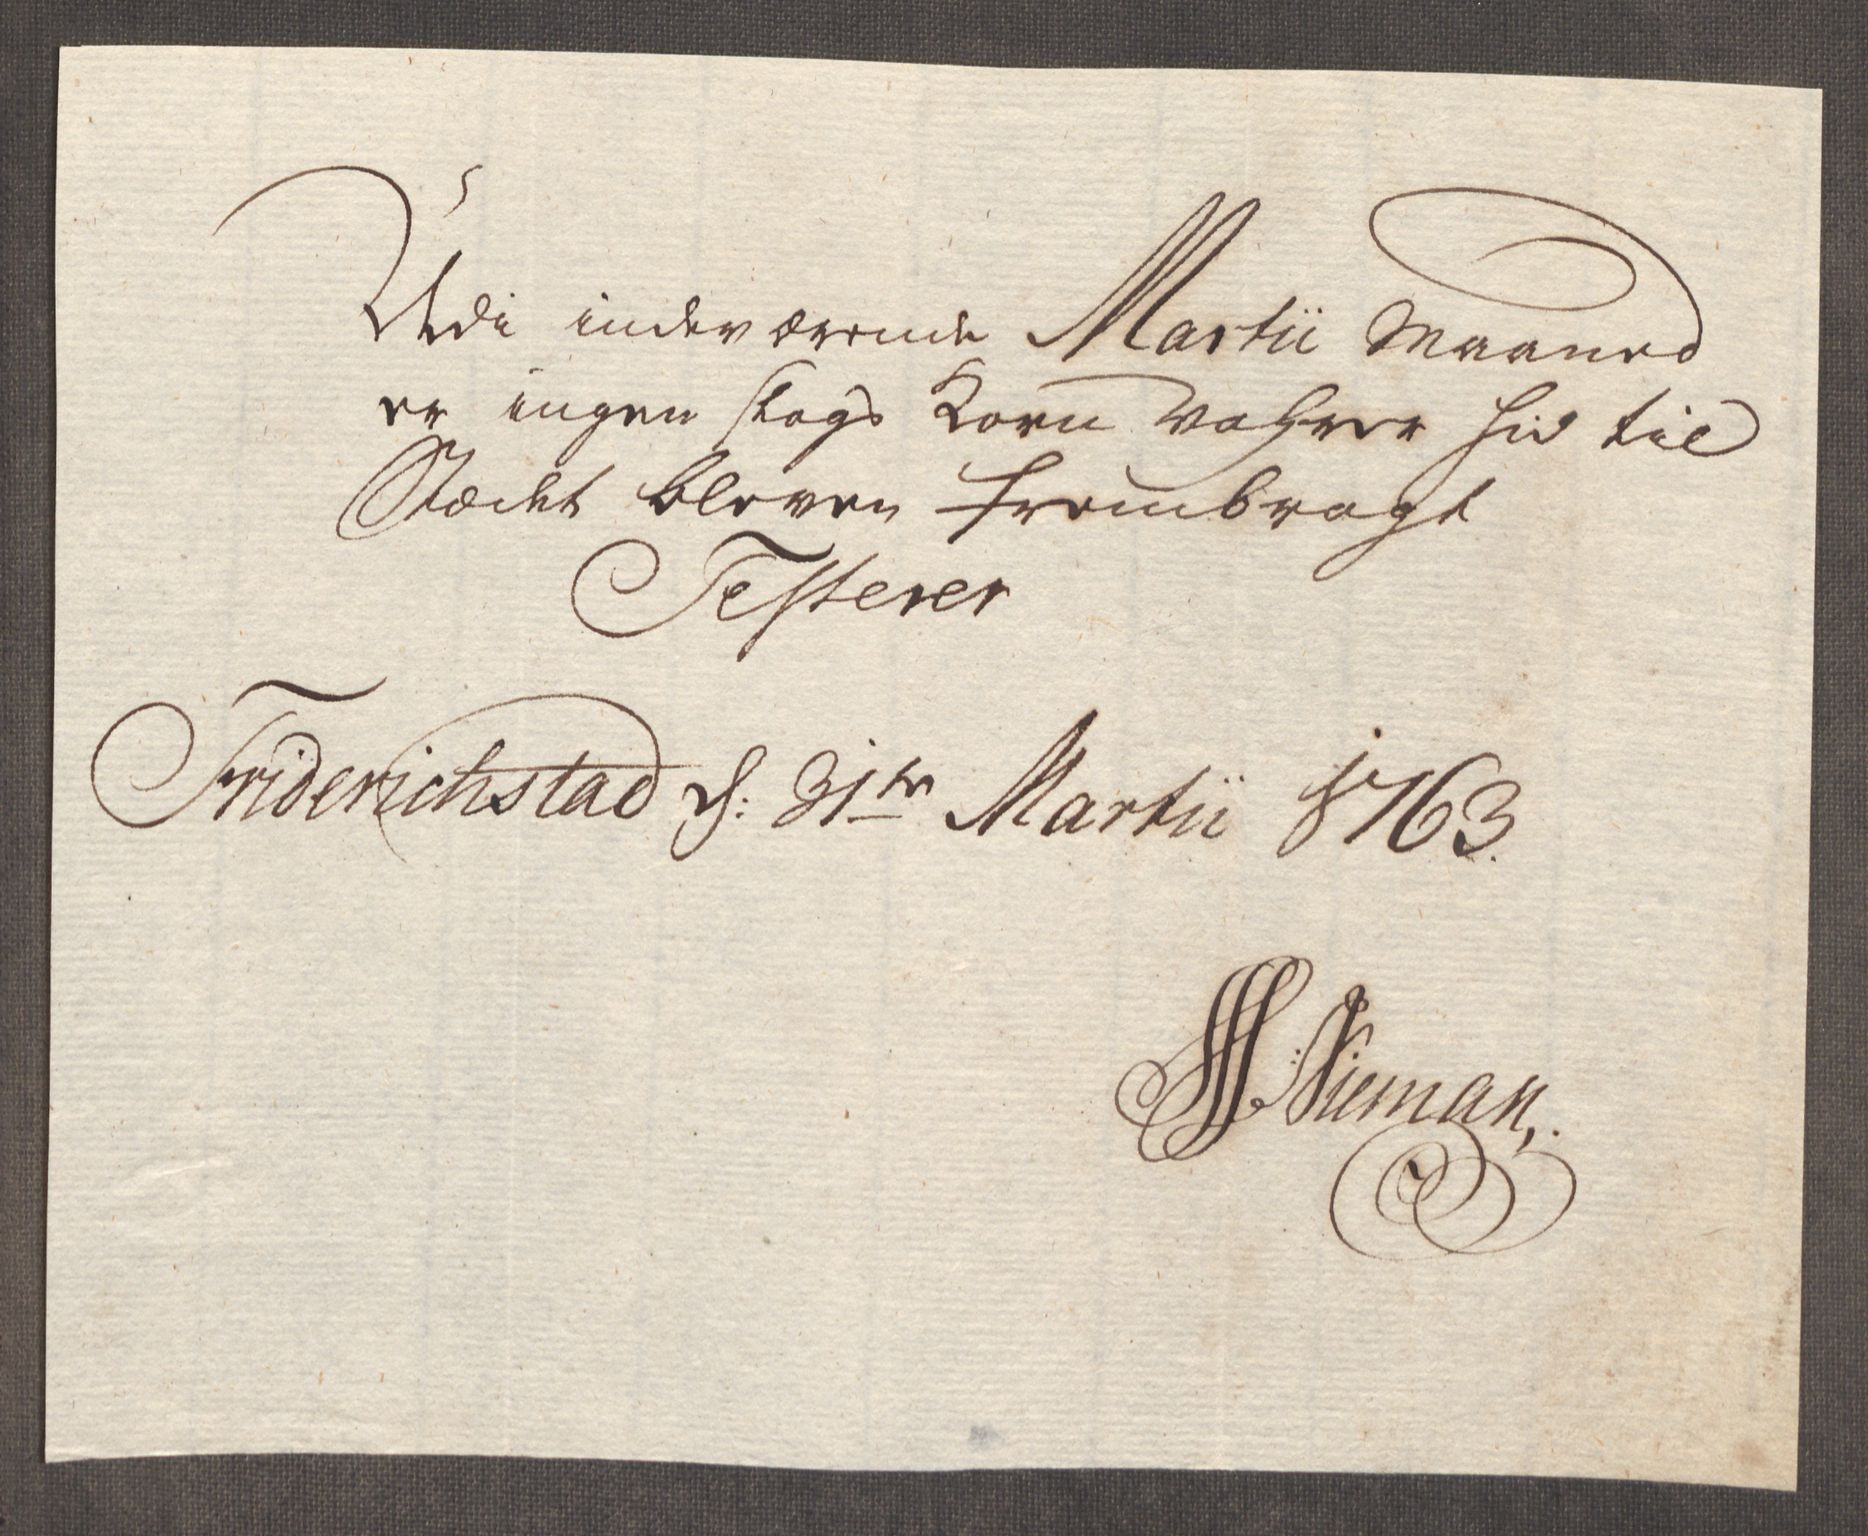 Udi indeværende Martii Maaned
er ingen slags Korn Vahrer hid til
Stædet bleven frembragt
Testerer
Friderichstad d: 31te Martii 1763.
H: Nieman,.